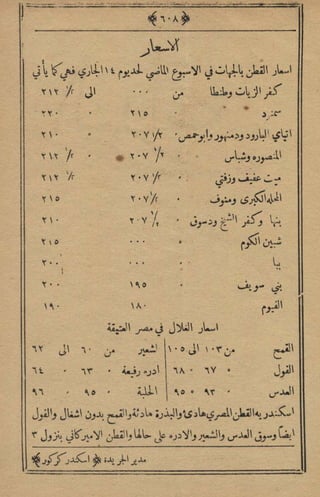 ﴿٦٠٨﴾
الاسعار
اسعار القطن بالجهات في الاسبوع الماضي لحد يوم ١٤ الجاري فهي كما يأتي
كفر الزيات وطنطا من ٠٠٠ الى ٢١٢ ١/٢
سمنود ٠ ٢١٥ ٠ ٢٢٠
اتياي البارود ودمنهور وابوحمص ٠ ٢٠٧ ١/٢ ٠ ٢١٠
المنصوره وشباس ٠ ٢٠٧ ١/٢ ٠ ٢١٢ ١/٢
ميت عفيف وزفتي ٠ ٢٠٧ ١/٢ ٠ ٢١٢ ١/٢
المحله الكبرى ومنوف ٠ ٢٠٧ ١/٢ ٢١٥
بنها وكفر الشيخ ودسوق ٠ ٢٠٧ ١/٢ ٢١٠
شبين الكوم ٠ ٠٠٠ ٢١٥
ببا ٠ ٠٠٠ ٢٠٠
بني سويف ٠ ١٩٥ ٢٠٠
الفيوم ١٨٠ ١٩٠
اسعار الغلال في مصر العتيقة
القمح من ١٠٣ الى ١٠٥ لشعير من ٦٠ الى ٦٢
الفول ٠ ٦٧ ٠ ٦٨ ادره رفيعة ٠ ٦٣ ٠ ٦٤
العدس ٠ ٩٣ ٠ ٩٥ الحلبة ٠ ٩٥ ٠ ٩٦
اسكندريه القطن المصري هادئ والبذرة هادئة والقمح بدون اشغال والفول
ايضاً وسوق العدس والشعير والادره على حالها والقطن الاميركاني بنزول ٣
مدير الجريدة ﴿اسكندر كركور﴾